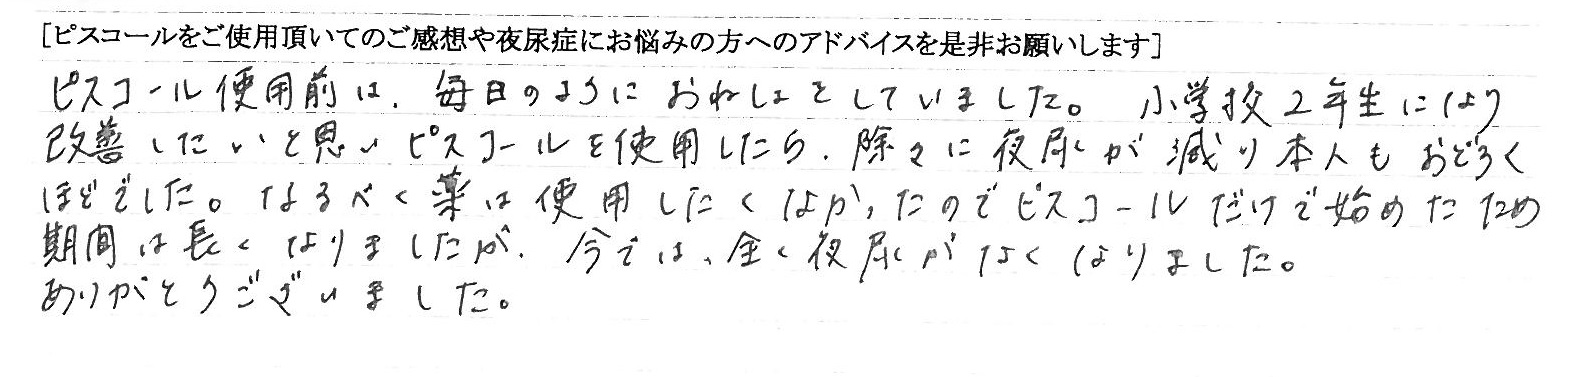 [ピスコールをご使用頂いてのご感想や夜尿症にお悩みの方へのアドバイスを是非お願いします]
ピスコール使用前は、毎日のようにおねしょをしていました。 小学校2年生になり
改善したいと思いピスコールを使用したら、除々に夜尿が減り本人もおどろく
ほどでした。なるべく薬は使用したくなかったのでピスコールだけで始めたため
期間は長くなりましたが、今では、全く夜尿がなくなりました。
ありがとうございました。